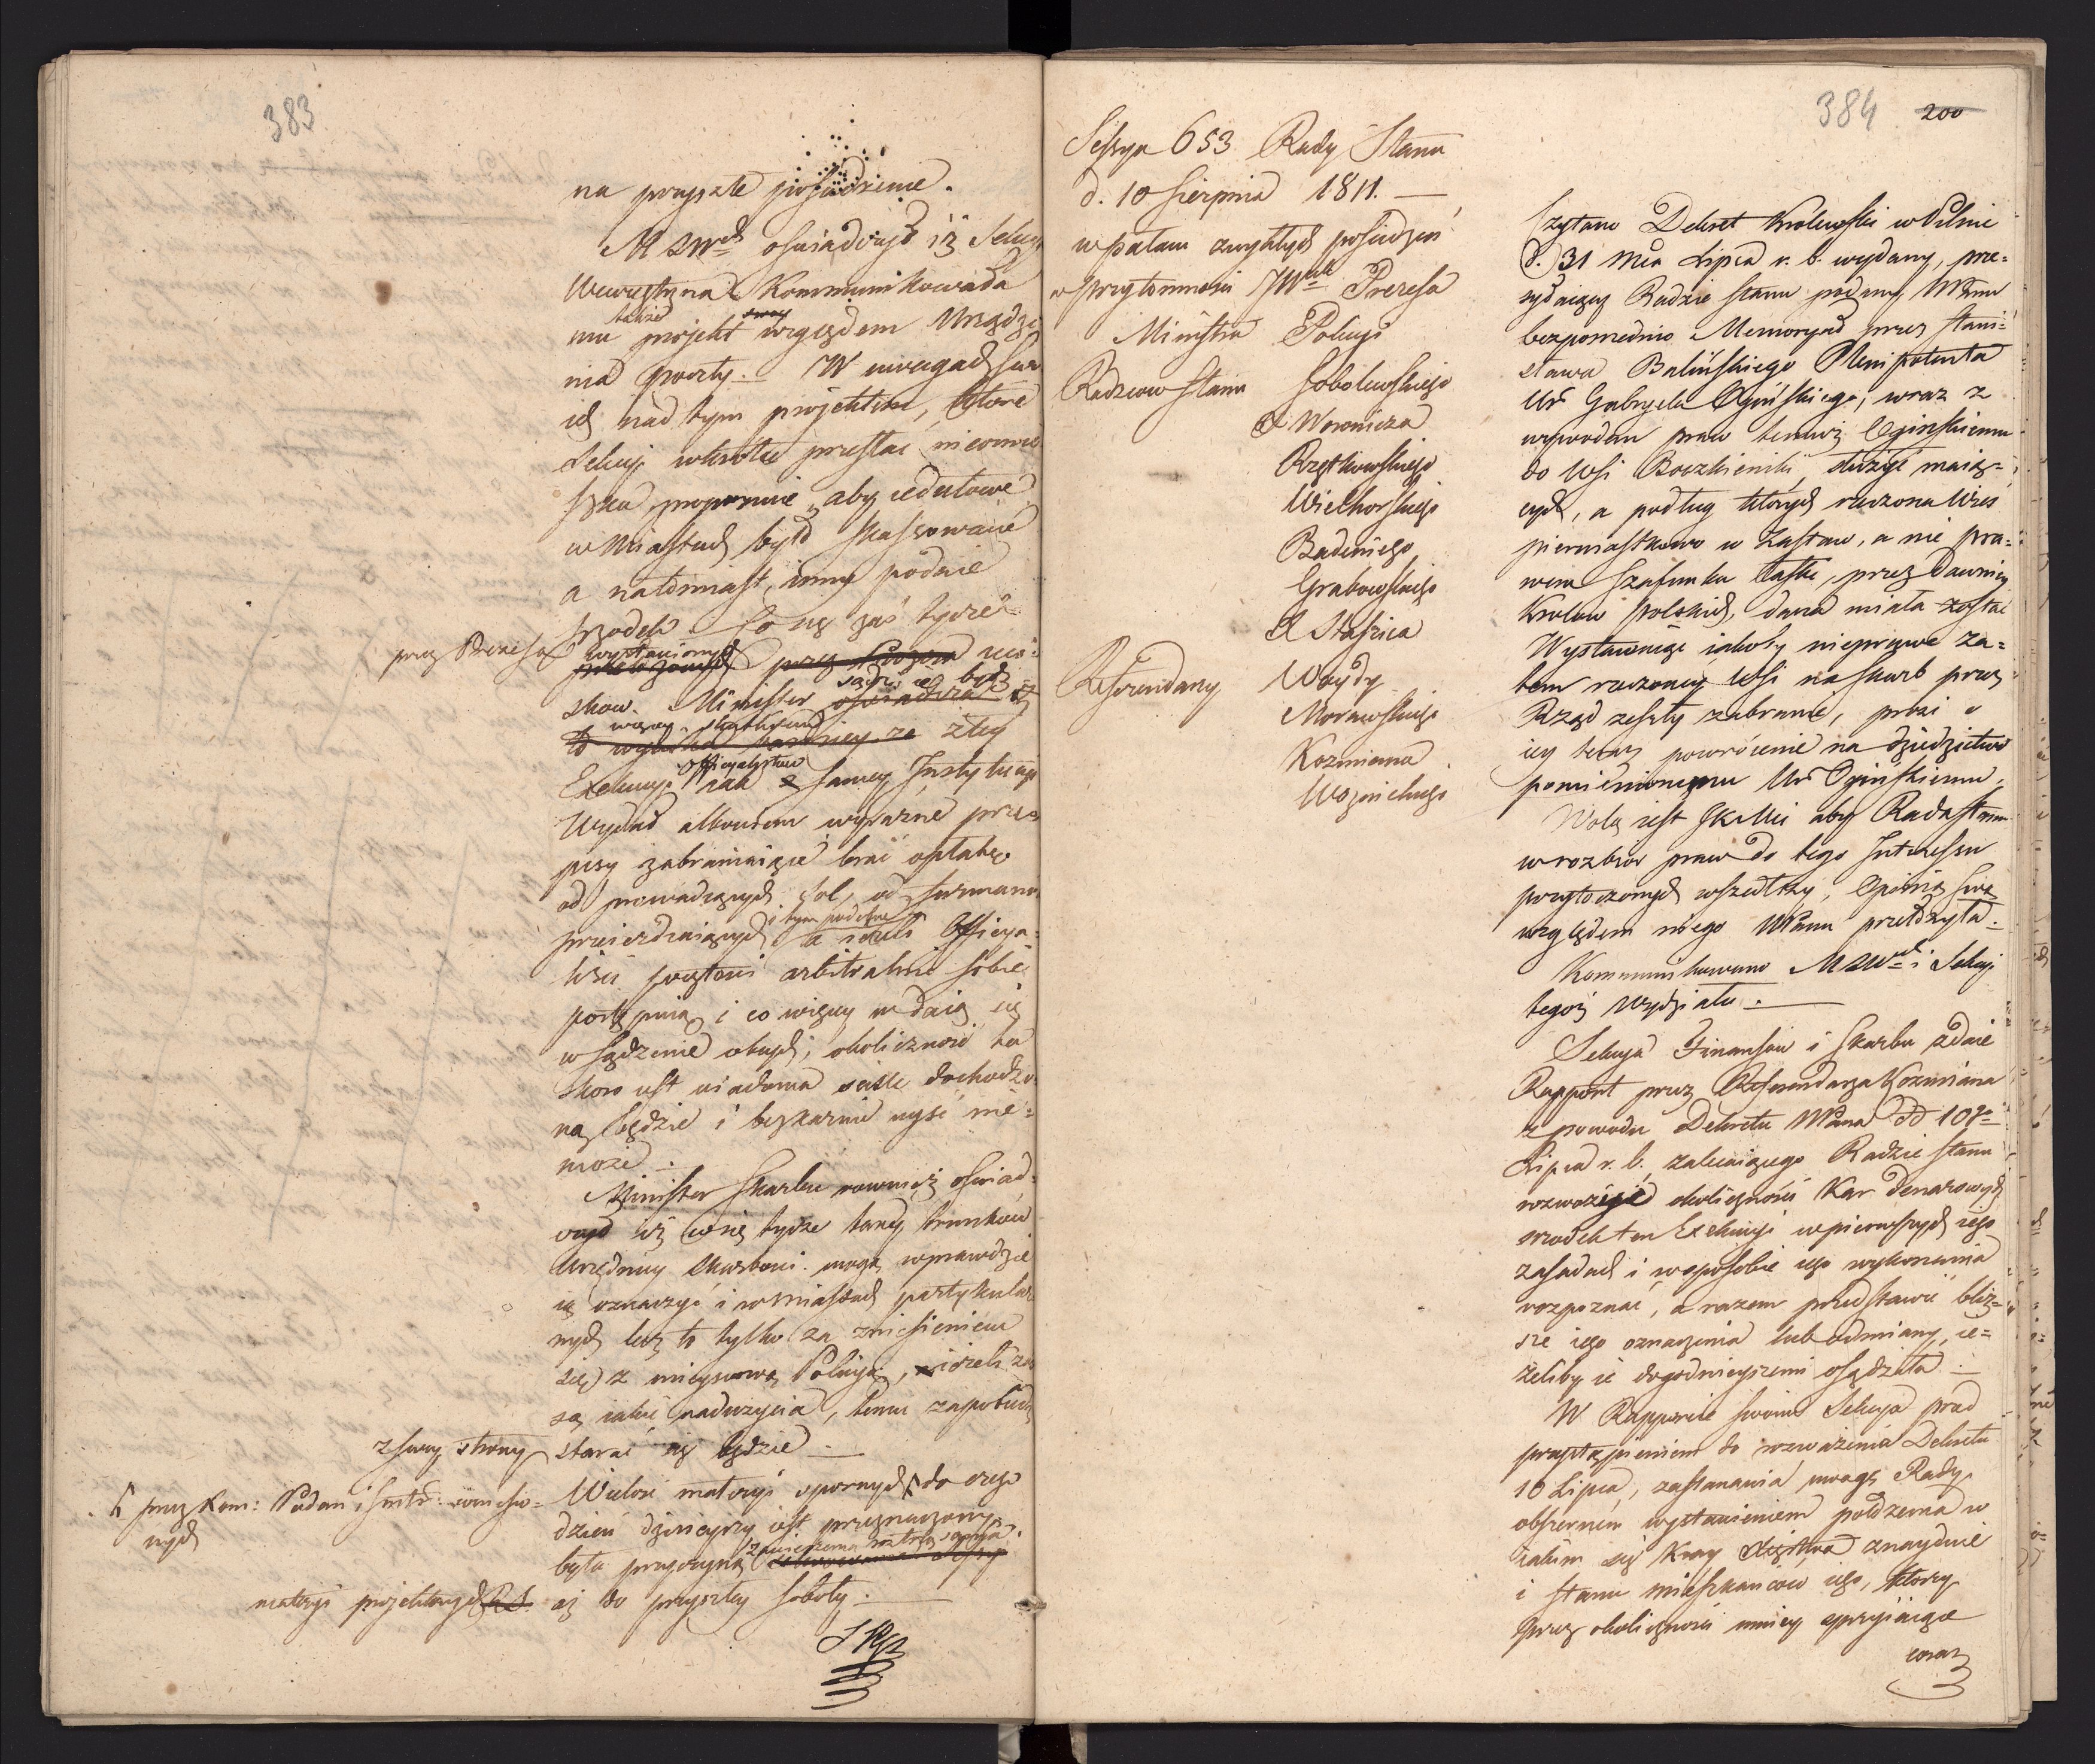 383
na przyszłe posiedzenie.
M SWch oświadczył iż Sekcya
Wewnętrzna Kommunikowała
mu także projekt swoy względem Urządze
nia poczty. W uwagach swo
ich nad tym projektem, które
Sekcyi wkrótce przesłać nieomie
szka, proponuie aby
w Miastach było skassowane
a natomiast, inny podaie
szrodek. Co się zaś tycze
przez Prezesa wystawionych przez ucis:
skow. Minister sądzi ie być
więcey skutkiem złey
Exekucyi Officyalistow iak z samey Instytucyi
Wydał albowiem wyraźne prze
pisy zabraniaiące brać opłatę
od prowadzących sol, od furmanow
przeieżdzaiących i tym podobne a ieżeli Officya
liści arbitralnie sobie
postępuią i co więcey wdaią się
w sądzenie okoliczność ta
skoro iest wiadoma ściśle dochodzo
ną będzie i bezkarnie uyść nie=
może.
Minister Skarbu rowniesz oświad=
czył iż co się tycze taxy trunkow
Urzędnicy skarbowi mogą wprawdzie
ią oznaczyć i w Miastach partykular
nych lecz to tylko za zniesieniem
się z mieyscową Policyą, ieżeli zaś
są iakie nadużycia, temu zapobiedz
z swey strony starać się będzie.
Wielość materyi spornych do czego
przez Kom: Podań i Instr: wniesio=
nych
dzień dzisieyszy iest przeznaczony
była przyczyną zawieszenia roztrząsania
materyi projektowych aż do przyszłey soboty.
384 200
Sessya 653 Rady Stanu
d. 10 Sierpnia 1811.
w pałacu zwykłych posiedzeń
w przytomności JWo Prezesa
Ministra Policyi
Radzcow Stanu Sobolewskiego
X Woronicza
Rzętkowskiego
Wielhorskiego
Badeniego
Grabowskiego
X Staszica
Referendarzy Woydy
Morawskiego
Kozmiana
Woznickiego
Czytano Dekret Krolewski w Pilnie
d. 31 Mca Lipca r. b. wydany, prze=
syłaiący Radzie Stanu podany NPanu
bezpośrednio Memoryał przez Stani=
sława Balińskiego Plenipotenta
Ur Gabryela Ogińskiego, wraz z
wywodem praw temuż Ogińskiemu
do Wsi służyć maią=
cych, a podług których rzeczona Wieś
pierwiastkowo w Zastaw, a nie pra=
wem szafunku łaski, przez dawnieys
Krolow polskich, dana miała zostać
Wystawuiąc iakoby nieprawe za=
tem rzeczoney Wsi na skarb przez
Rząd zeszły zabranie, prosi o
iey teraz powrócenie na dziedzictwo
pomienionemu Ur Ogińskiemu,
Wolą iest JKMci aby Rada Stanu
w rozbior praw do tego Interessu
przytoczonych wszedłszy, Opinią swą
względem niego NPanu przełożyła.
Kommunikowano M SWch i Sekcyi
tegoż Wydziału.
Sekcya Finansow i Skarbu zdaie
Rapport przez Referendarza Kozmiana
z powodu Dekretu NPana d 10go
Lipca r. b. zalecaiącego Radzie Stanu
rozważyć okoliczności Kar Denarowych
srodek ten Exekucyi w pierwszych iego
zasadach i w sposobie iego wykonania
rozpoznać, a razem przedstawić bliż=
sze iego oznaczenia lub odmiany, ie=
żeliby ie dogodnieyszemi osądziła.
W Rapporcie swoim Sekcya przed
przystąpieniem do rozważenia Dekretu
10 Lipca, zastanawia uwagę Rady
obszernem wystawieniem położenia w
iakim się Kray Xięstwa znayduie
i stanu mieszkancow iego, ktorzy
przez okoliczności mniey sprzyiaiące
coraz